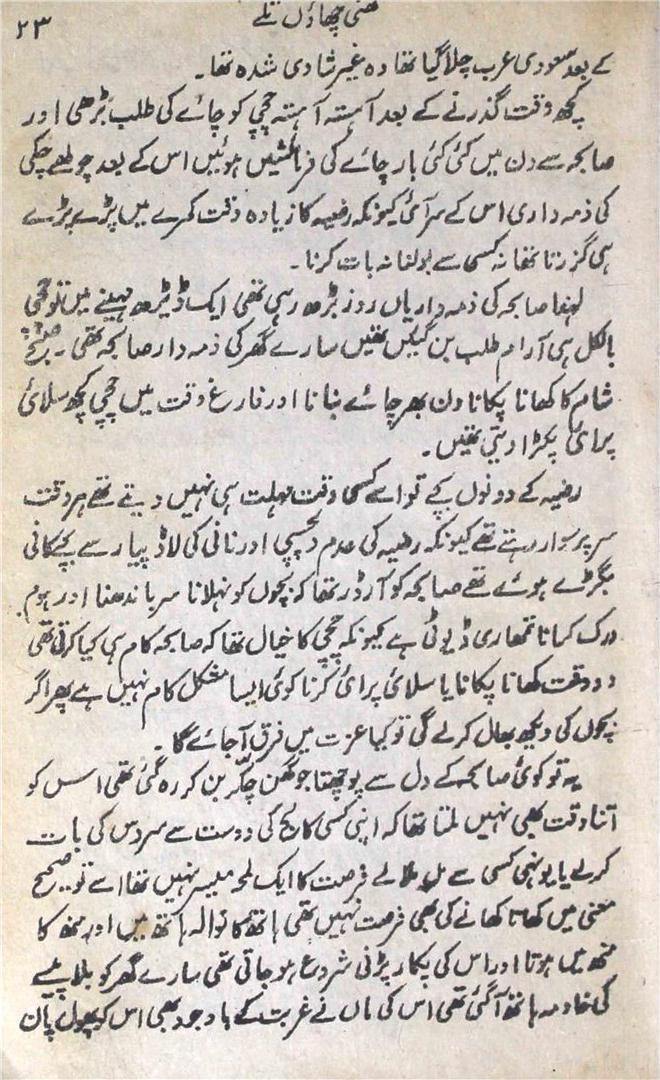 گھنی چھاؤں تلے
۲۳
کے بعد سعودی عرب چلا گیا تھا وہ غیر شادی شدہ تھا۔
کچھ وقت گذرنے کے بعد آہستہ آہستہ چچی کو چائے کی طلب بڑھی اور
صابحہ سے دن میں کئی کئی بار چائے کی فرمائشیں ہوئیں اس کے بعد چولھے چکی
کی ذمہ داری اس کے سر آئی کیونکہ رضیہ کا زیادہ وقت کمرے میں پڑے پڑے
ہی گزرتا تھا نہ کسی سے بولنا نہ بات کرنا۔
لہٰذا صابحہ کی ذمہ داریاں روز بڑھ رہی تھی ایک ڈیڑھ مہینے میں تو چچی
بالکل ہی آرام طلب بن گئیں تھیں سارے گھر کی ذمہ دار صابحہ تھی۔ صبح
شام کا کھانا پکانا دن بھر چائے بنانا اور فارغ وقت میں چچی کچھ سلائی
پرائی پکڑا دیتی تھیں۔
رضیہ کے دونوں بچے تو اسے کسی وقت مہلت ہی نہیں دیتے تھے ہر وقت
سر پر سوار رہتے تھے کیونکہ رضیہ کی عدم دلچسپی اور نانی کی لاڈ پیار سے بچکانی
بگڑے ہوئے تھے صابحہ کو آرڈر تھا کہ بچوں کو نہلانا سر باندھنا اور ہوم
ورک کرانا تمھاری ڈیوٹی ہے کیونکہ چچی کا خیال تھا کہ صابحہ کام ہی کیا کرتی تھی
دو وقت کھانا پکانا یا سلائی پرائی کرنا کوئی ایسا مشکل کام نہیں ہے پھر اگر
بچوں کی دیکھ بھال کرلے گی تو کیا عزت میں فرق آجائے گا۔
یہ تو کوئی صابحہ کے دل سے پوچھتا جو گھن چکّر بن کر رہ گئی تھی اس کو
اتنا وقت بھی نہیں ملتا تھا کہ اپنی کسی کالج کی دوست سے سروس کی بات
کرلے یا یونہی کسی سے مل ملالے فرصت کا ایک لمحہ میسر نہیں تھا اسے تو صحیح
معنی میں کھانا کھانے کی بھی فرصت نہیں تھی ہاتھ کا نوالہ ہاتھ میں اور منھ کا
منھ میں ہوتا اور اس کی پکار پڑنی شروع ہو جاتی تھی سارے گھر کو بلا پیسے
کی خادمہ ہاتھ آگئی تھی اس کی ماں نے غربت کے باوجود بھی اس کو پھول پان